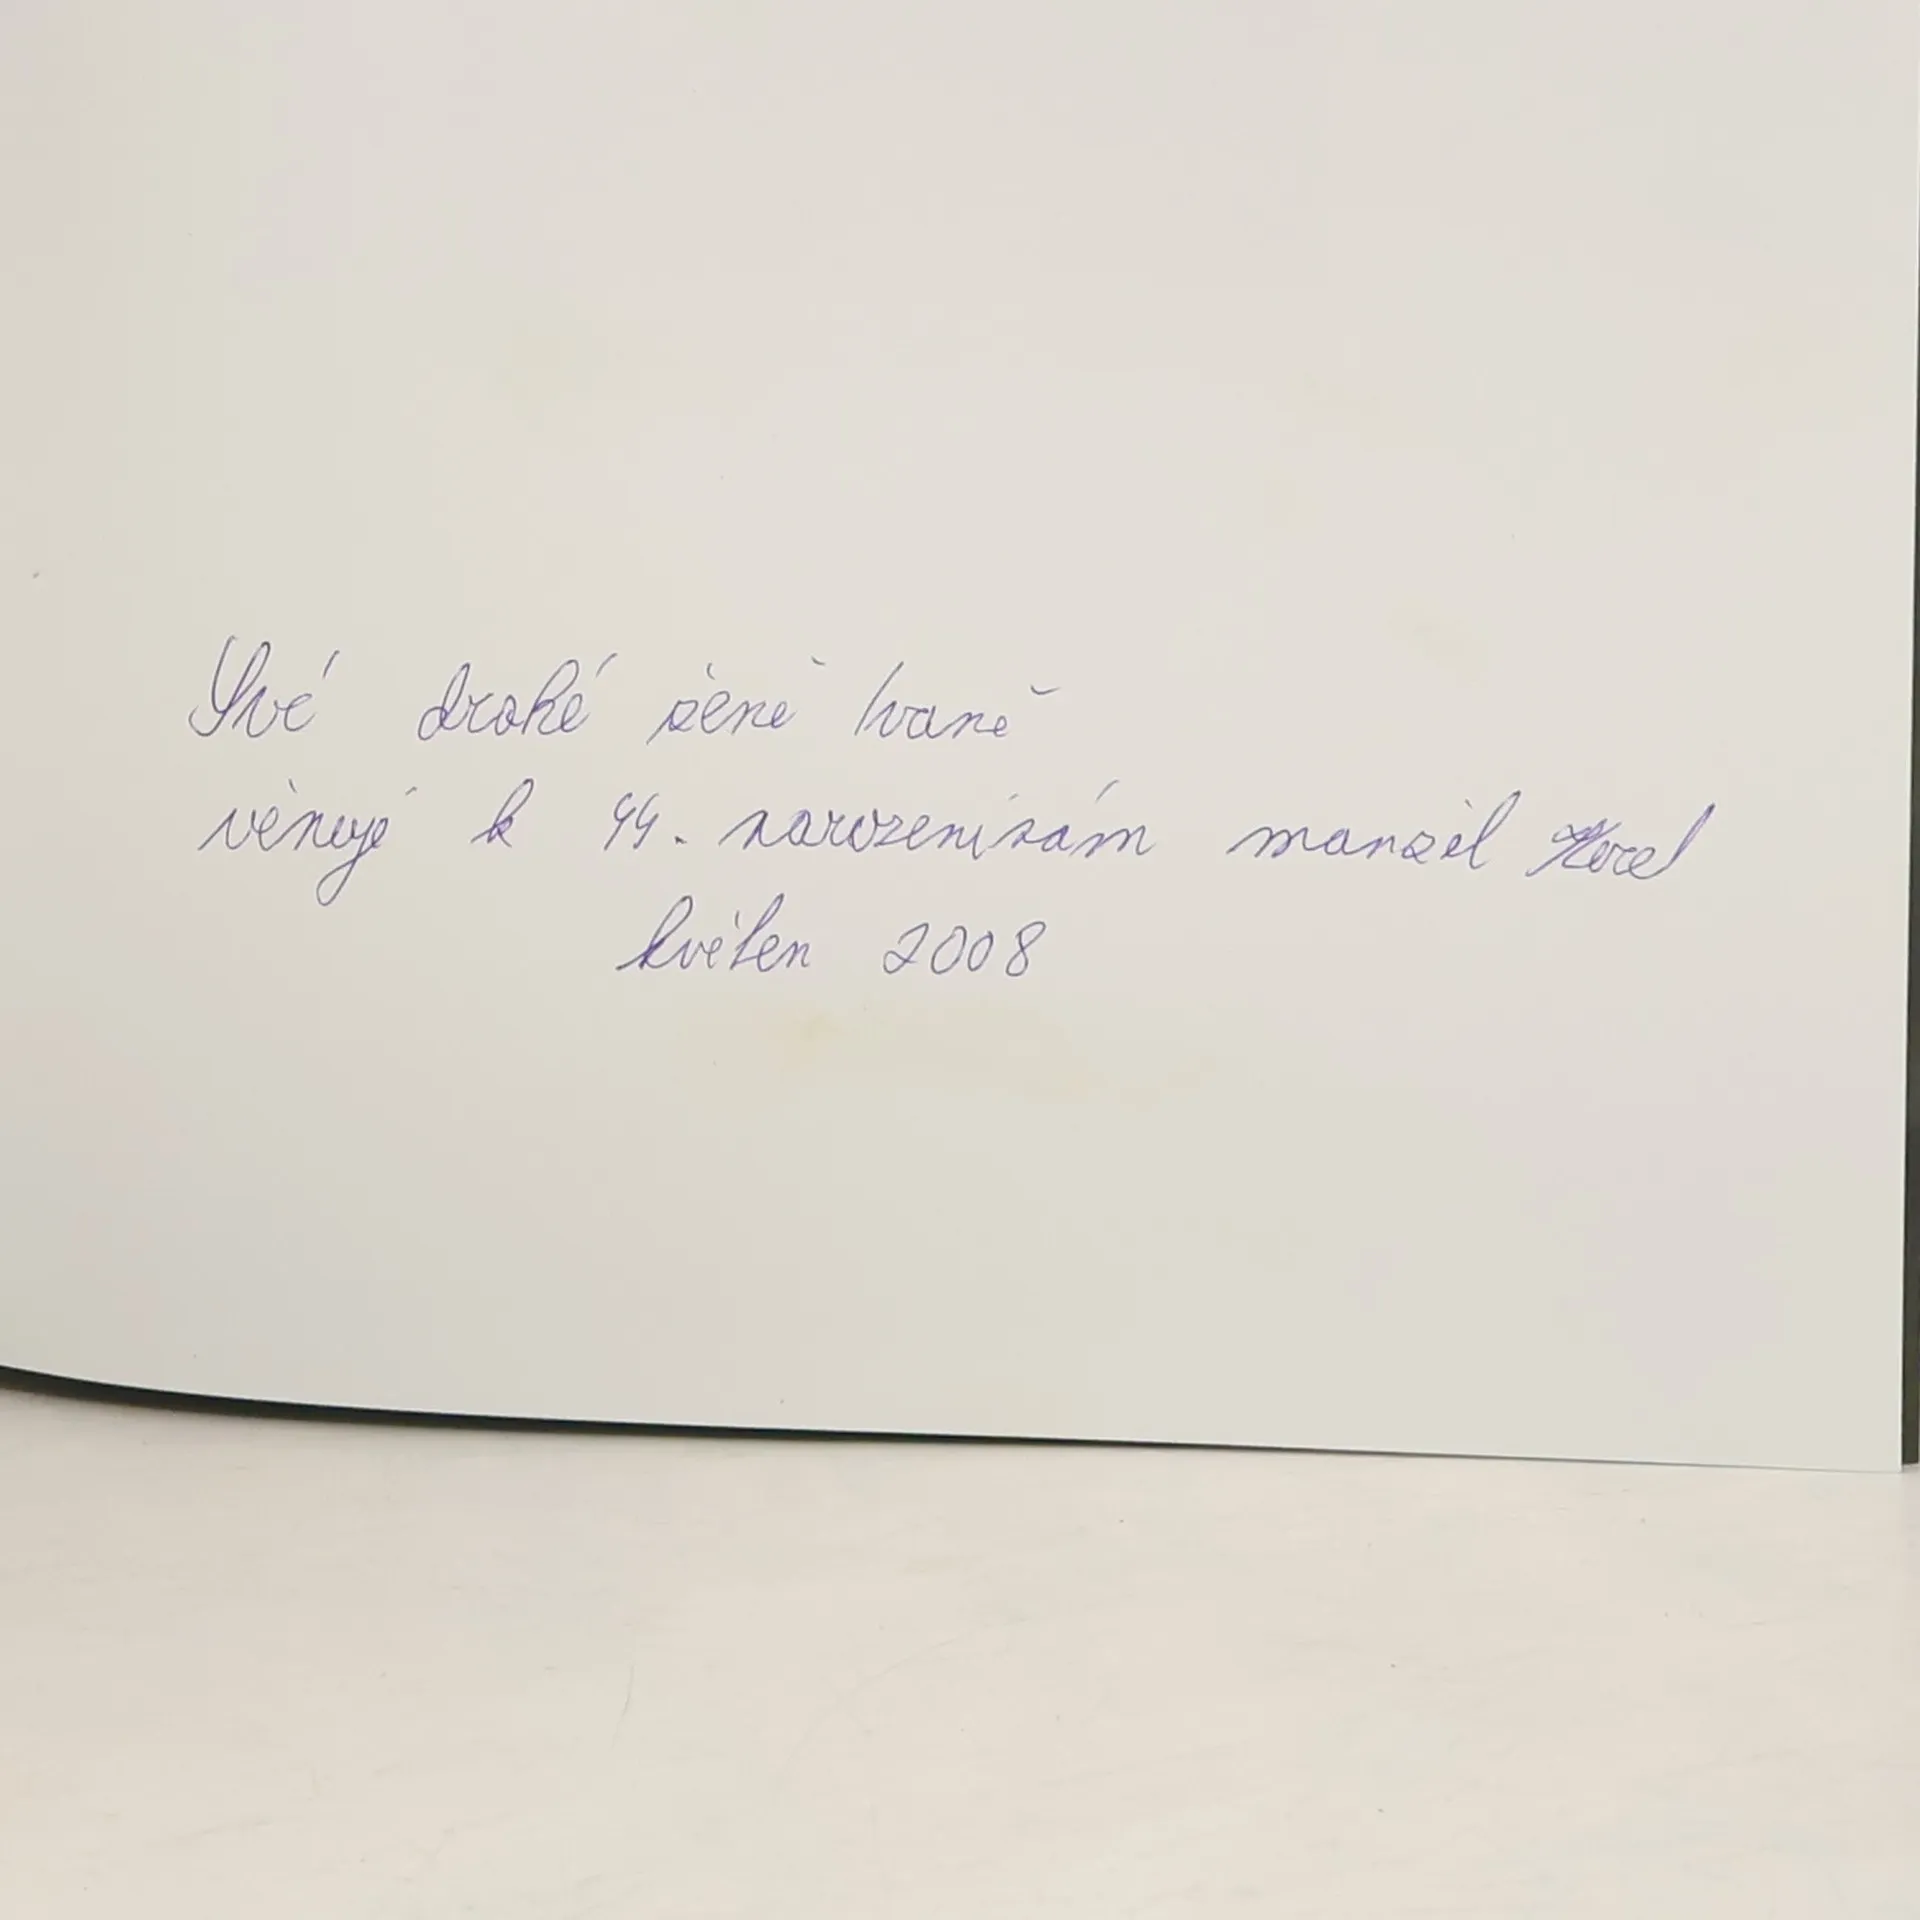 Své drahé ženě Ivaně
věnuje k 44. narozeninám manžel Karel
květen 2008